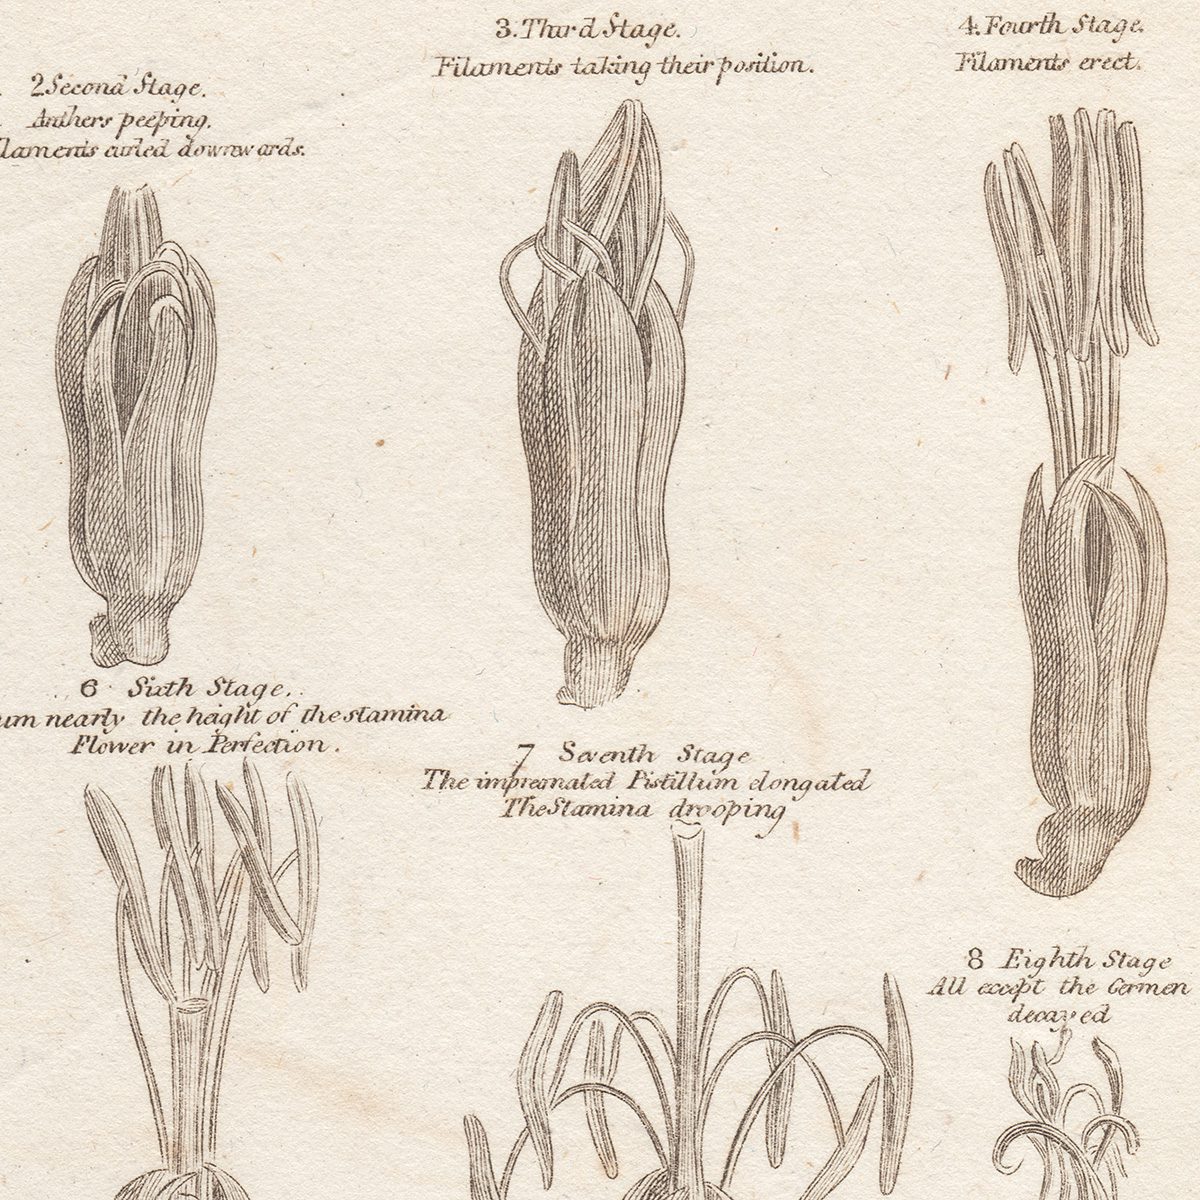 2 Second Stage.
Anthers peeping.
laments curled downwards.
3. Third Stage.
Filaments taking their position.
4. Fourth Stage.
Filaments erect.
6 Sixth Stage.
um nearly the height of the stamina
Flower in Perfection.
7 Seventh Stage
The impregnated Pistillum elongated
The Stamina drooping
8 Eighth Stage
All except the Germen
decayed